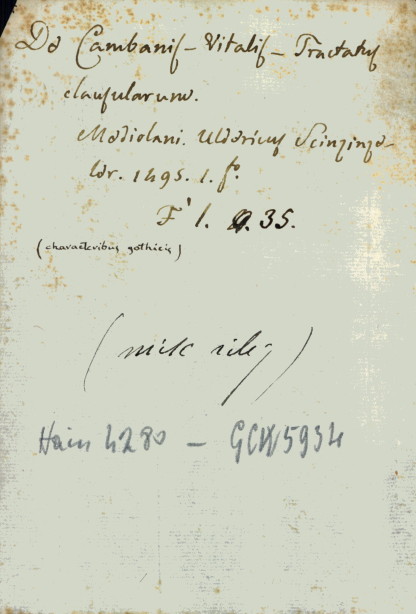 De Cambanis – Vitalis – Tractatus
clausularum.
Mediolani. Uldericus Scinzinze-
ler. 1495. 1. fo.
F 1. 9. 35.
(characteribus gothicis)
Hain 4280 – GCW5934